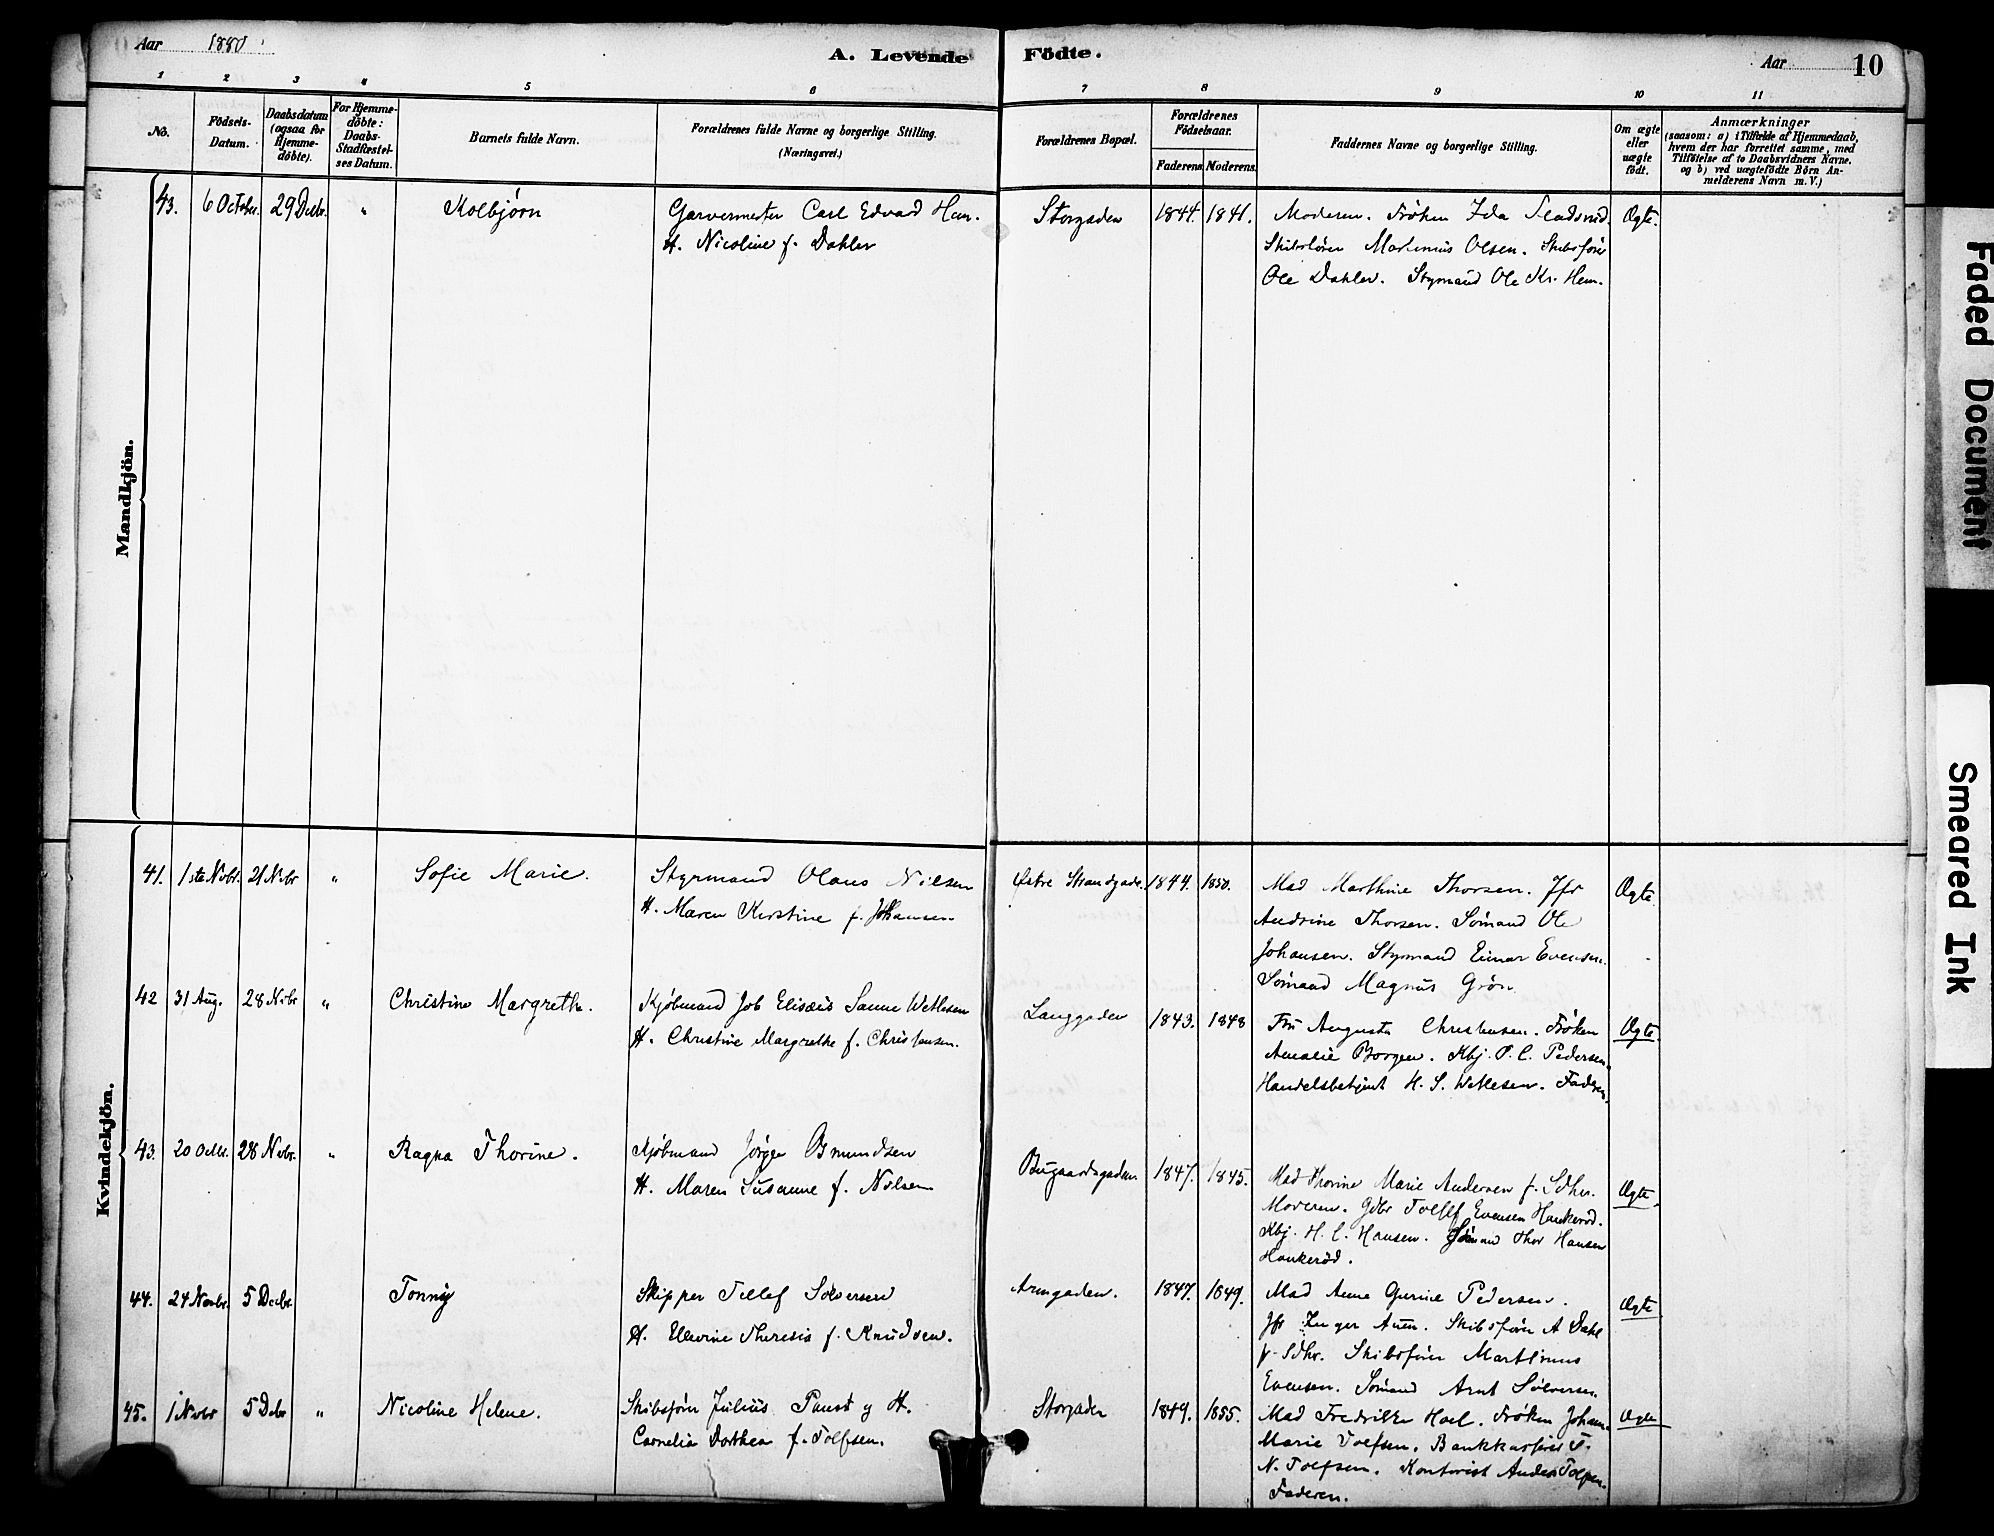 Aar 1880
A. Levende Födte.
Aar 10
1 2 3 4 5 6 7 8 9 10 11
No.
Födsels-Datum.
Daabsdatum (ogsaa for Hjemme-döbte).
For Hjemme-döbte: Daabs-Stadfæstel-ses Datum.
Barnets fulde Navn.
Forældrenes fulde Navne og borgerlige Stilling.
(Næringsvei.)
Forældrenes Bopæl.
Forældrenes Födselsaar.
Faderens. Moderens.
Faddernes Navne og borgerlige Stilling.
Om ægte eller uægte födt.
Anmærkninger
(saasom: a) i Tilfælde af Hjemmedaab,
hvem der har forrettet samme, med
Tilföielse af to Daabsvidners Navne.
og b) ved uægtefödte Börn An-
melderens Navn m. V.)
Mandkjön.
43. 6 October. 29 Decbr. " Kolbjørn Garvermester Carl Edvard Hem. Storgaden 1844. 1841. Moderen. Frøken Ida Ægte.
H. Nicoline f. Dahler Skibsfører Martinius Olsen. Skibsfører
Ole Dahler. Styrmand Ole Kr. Hem.
Kvindekjön.
41. 1ste Novbr. 21 Novbr " Sofie Marie. Styrmand Olaus Nilsen Østre Strandgade. 1844. 1850. Mad Marthine Thorsen. Jfr Ægte
H. Maren Kirstine f. Johansen Andrine Thorsen. Sømand Ole
Johansen. Styrmand Einar Evensen.
Sømand Magnus Grøn
42 31 Aug. 28 Novbr " Christine Margrethe. Kjøbmand Job Elisæus Sanne Wetlesen Langgaden 1843. 1848 Fru Augusta Christensen. Frøken Ægte.
H. Christine Margrethe f. Christensen. Amalie Borgen. Kbj. P. C. Pedersen.
Handelsbetjent H. S. Wetlesen. Faderen.
43. 20 Octbr. 28 Novbr. " Ragna Thorine. Kjøbmand Jørgen Omundsen Bugaardsgaden 1847. 1845. Mad Thorine Marie Andersen f. Sdhr. Ægte.
H. Maren Susanne f. Nilsen Moderen. Gdbr Tollef Evensen Haukerød.
Kbj. H. C. Hansen. Sømand Thor Hansen
Haukerød.
44. 24 Novbr. 5 Decbr. Tonny Skipper Tellef Sølversen Armgaden. 1847. 1849. Mad Anne Gurine Pedersen. Ægte
H. Elevine Theresis f. Knudsen. Jfr Inger Auen. Skibsfører A Dahl
f. Sdhr. Skibsfører Marthinus
Evensen. Sømand Arnt Sølversen
45. 1 Novbr 5 Debr " Nicoline Helene. Skibsfører Julius Paust og H. Storgaden 1849. 1855. Mad Fredrikke Hoel. Frøken Johan. Ægte
Cornelia Dorthea f. Tolfsen. Marie Tolfsen. Bankkasserer T.
N. Tolfsen. Kontorist Anders Tolfsen.
Faderen.
Faded Document
Smeared Ink